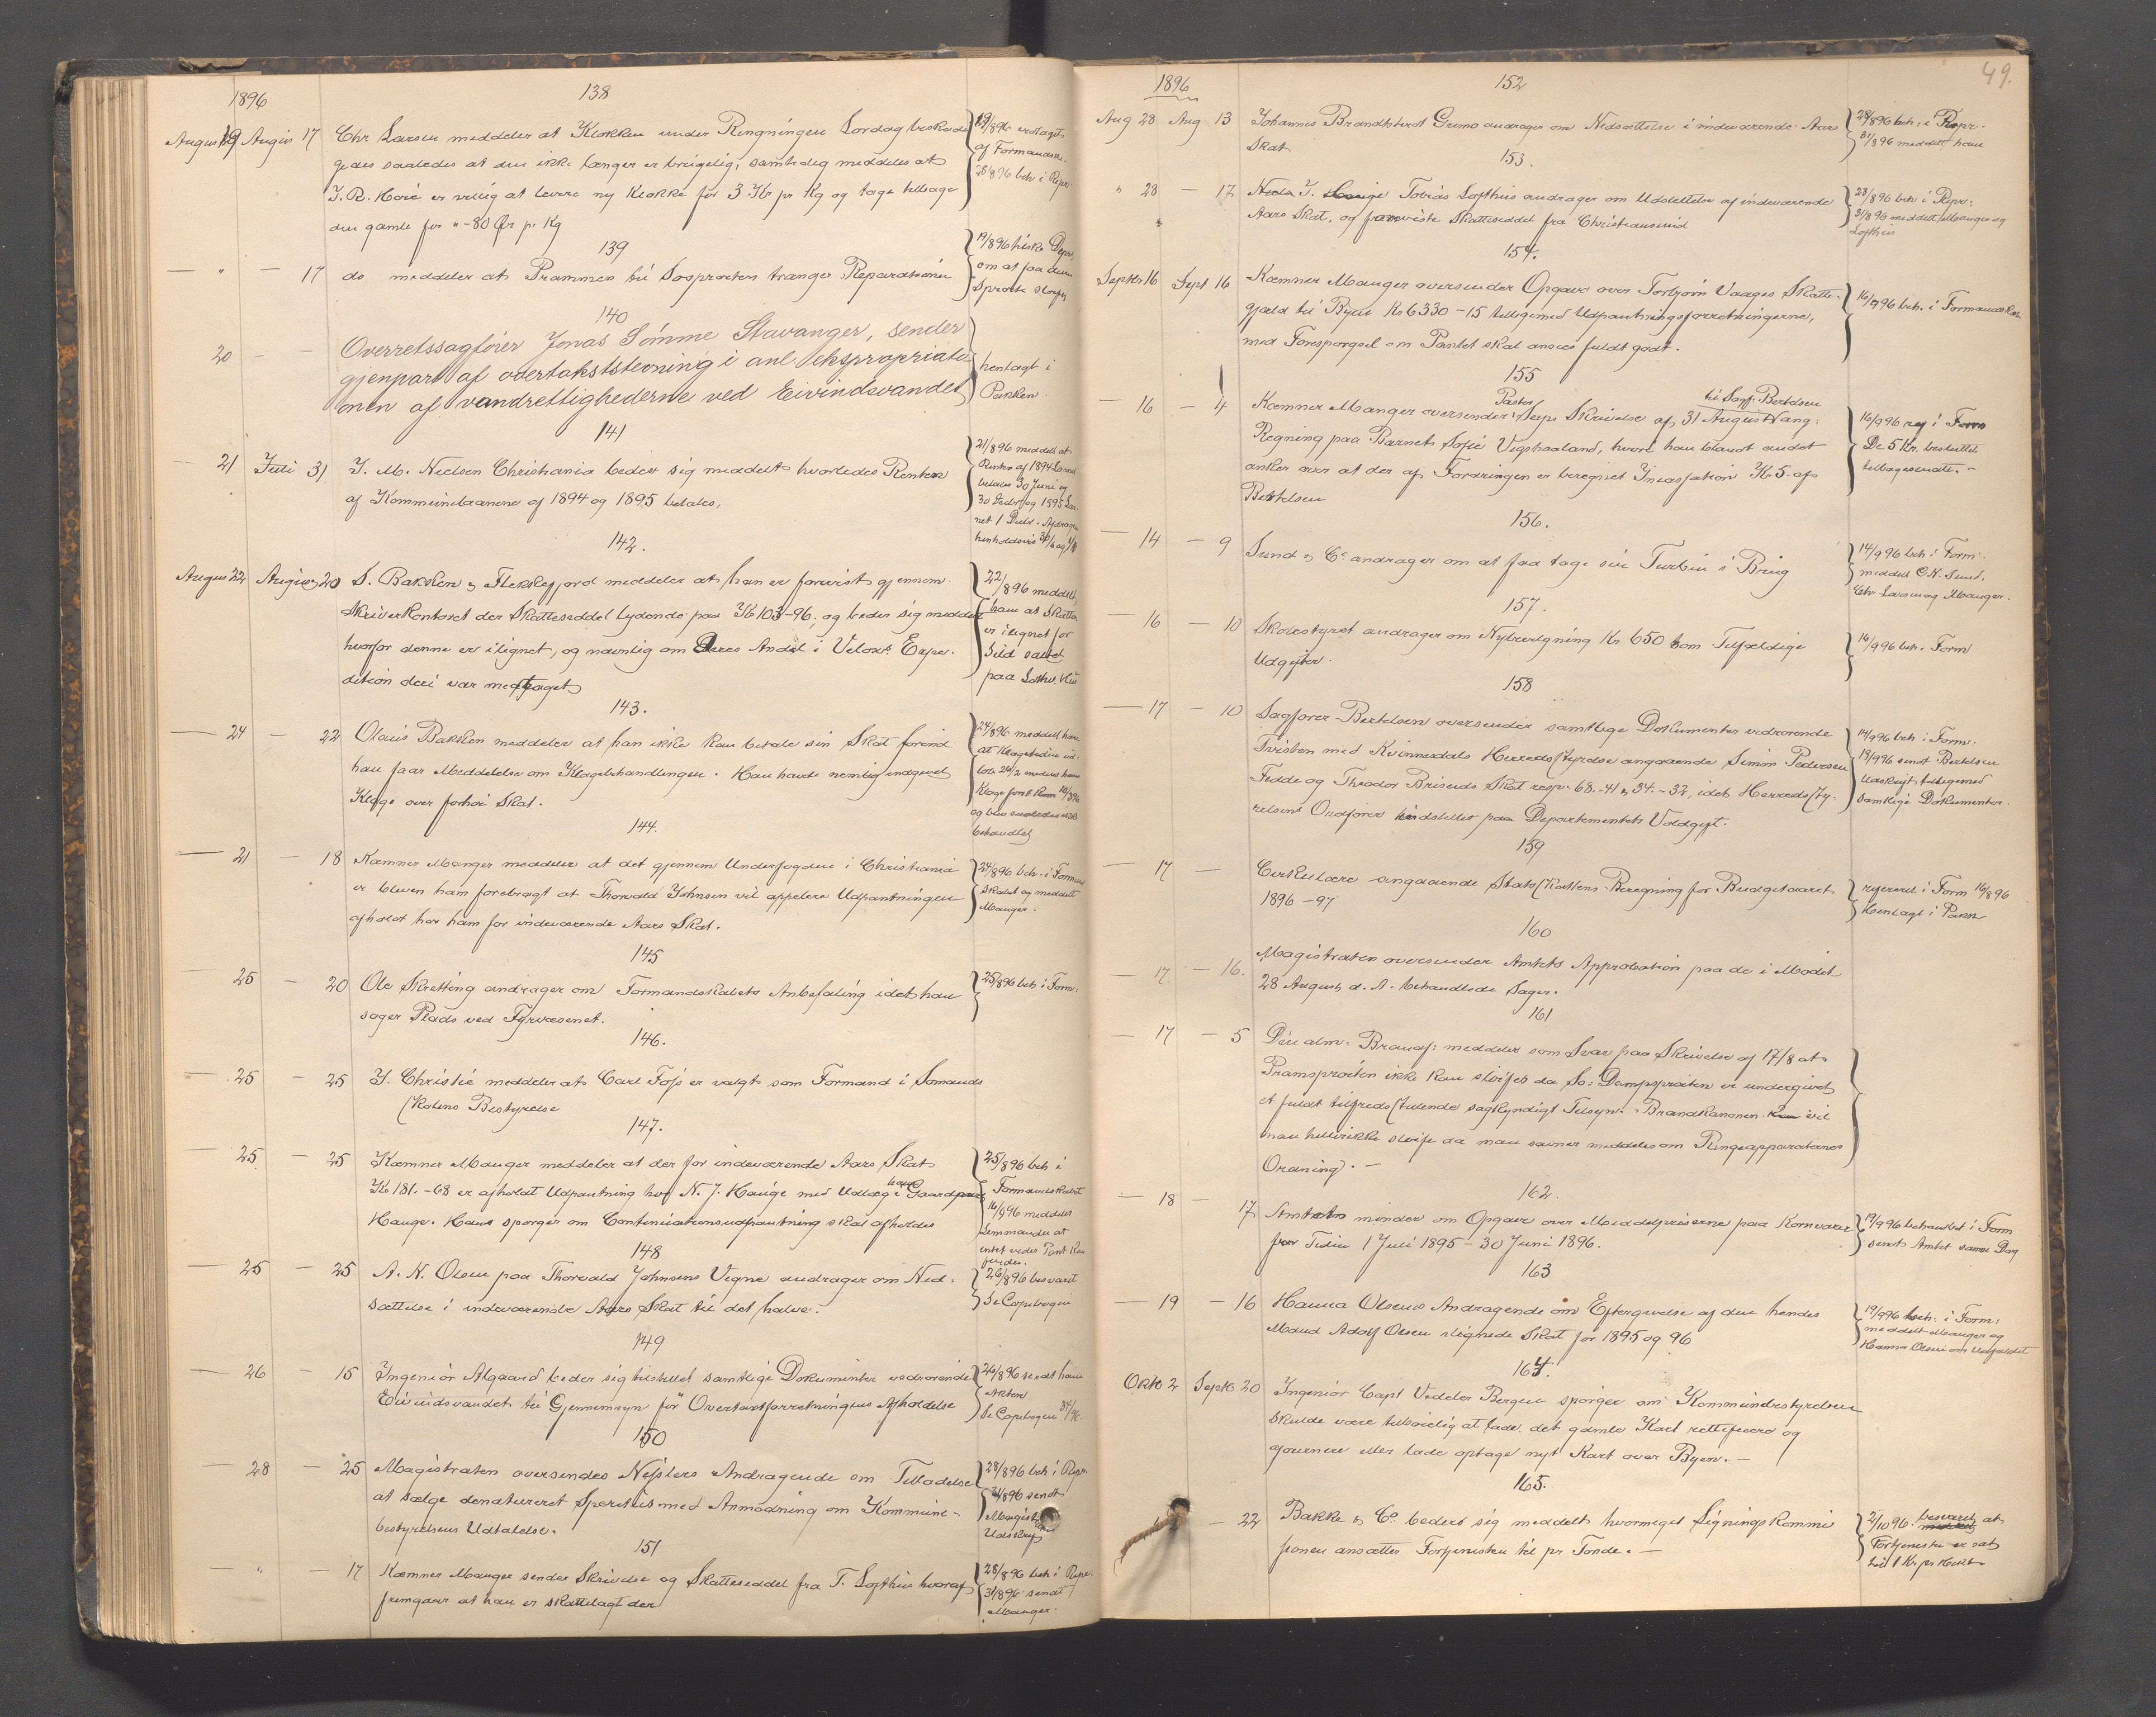 1896
138
August 19 August 17 Chr. Larsen meddeler at Klokken under Ringningen Lørdag beskadi
gedes saaledes at den ikke længer er brugelig, samtidig meddeles at
J. R. Høie er villig at levere ny Klokke for 3 Kr pr Kg og tage tilbage
den gamle for "-80 Ør pr Kg
19/896 vedtaget
af Formandsk.
28/896 beh i Repr.
139
— " — 17 do meddeler at Prammen til Søsprøiten trænger Reparation
om at faa
140
20 — — Overretssagfører Jonas Sømme Stavanger, sender
gjenpart af overtakststevning i anl. ekspropriati
onen af vandrettighederne ved Eivindsvandet
henlagt i
Pakken
141
— 21 Juli 31 J. M. Nielsen Christiania beder sig meddelt hvorledes Renten
af Kommunelaanene af 1894 og 1895 betales,
21/896 meddelt at
Renten af 1894 Laanet
betales 30 Juni og
142.
August 22 August 20 S. Bakken & Flekkefjord meddeler at han er forevist gjennem
Skriverkontoret der Skatteseddel lydende paa Kr 103-96, og beder sig meddelt
hvorfor denne er ilignet, og navnlig om Deres Andel i Velox's Expe-
dition deri var medtaget
22/896 meddelt
ham at Skatten
er ilignet for
Sild saltet
paa
143.
— 24 — 22 Olaus Bakken meddeler at han ikke kan betale sin Skat forind
han faar Meddelelse om Klagebehandlingen. Han havde nemlig indgivet
Klage over forhøi Skat.
24/896 meddelt ham
at Klagetiden ud-
behandlet
144.
— 21 — 18 Kæmner Manger meddeler at det gjennem Underfogden i Christiania
er bleven ham forebragt at Thorvald Johnsen vil appelere Udpantningen
afholdt hos ham for indeværende Aars Skat.
24/896 beh. i Formand
skabet og meddelt
Manger.
145
— 25 — 20 Ole Skretting andrager om Formandskabets Anbefaling idet han
søger Plads ved Fyrvæsenet.
25/896 beh i Form.
146.
— 25 — 25 J. Christie meddeler at Carl Foss er valgt som Formand i Sømands
skolens Bestyrelse
147.
— 25 — 25 Kæmner Manger meddeler at der for indeværende Aars Skat
Kr 181.-68 er afholdt Udpantning hos N. J. Hauge med Udlæg i hans Gaardpart
Hauge. Han spørger om Continuationsudpantning skal afholdes
25/896 beh i
Formandskabet
16/996 meddelt
Lensmanden at
148
— 25 — 25 A. N. Olsen paa Thorvald Johnsens Vegne andrager om Ned-
sættelse i indeværende Aars Skat til det halve.
26/896 besvaret
Se Copibogen
149
— 26 15 Ingeniør Algaard beder sig tilstillet samtlige Dokumenter vedrørende
Eivindsvandet til Gjennemsyn før Overtaxtforretningens Afholdelse
26/896 sendt ham
Akten
Se Copibogen
150
— 28 — 25 Magistraten oversendes Nesslers Andragende om Tilladelse
at sælge denatureret Spiritus med Anmodning om Kommune-
bestyrelsens Udtalelse.
28/896 beh i Repr.
31/896 sendt
Magist.
Udskrift
151
— " — 17 Kæmner Manger sender Skrivelse og Skatteseddel fra T. Lofthus hvoraf
fremgaar at han er skattelagt der
28/896 beh i Repr.
31/896 sendt
Manger.
49.
1896
152
Aug 28 Aug 13 Johannes Brandtstved Grimo andrager om Nedsættelse i indeværende Aars
Skat
28/896 beh. i Repr.
31/896 meddelt ham
153.
" 28 — 17 Tobias Lofthus andrager om Udslettelse af indeværende
Aars Skat, og foreviste Skatteseddel fra Christianssund
28/896 beh i Repr.
31/896 meddelt Manger og
Lofthus
154.
Septbr 16 Sept 16 Kæmner Manger oversender Opgave over Torbjørn Vaages Skatte-
gjæld til Byen Kr 6330-15 tilligemed Udpantningsforretningerne,
med Forespørgsel om Pantet skal ansees fuldt godt.
16/996 beh. i Formandskab
155
— 16 — 4 Kæmner Manger oversender Pastor Seips Skrivelse af 31 August til Sagf. Bertelsen ang.
Regning paa Barnet Sofie Vegshaaland, hvori han blandt andet
anker over at der af Fordringen er beregnet Incassation Kr 5 af
Bertelsen
16/996 ref i Form
De 5 Kr. besluttet
tilbagesendt. -
156.
— 14 — 9 Sund & Co andrager om at faa tage sin Turbin i Brug
14/996 beh i Form.
meddelt C. H. Sund,
Chr. Larsen og Manger.
157.
— 16 — 10 Skolestyret andrager om Nybevilgning Kr 650 som Tilfældige
Udgifter.
16/996 beh. Form
158
— 17 — 10 Sagfører Bertelsen oversender samtlige Dokumenter vedrørende
Tvisten med Kvinnesdals Herredsstyrelse angaaende Simon Pedersen
Fedde og Theodor Briseids Skat resp. 68.-41 & 34.-32, idet Herredssty-
relsens Ordfører indstiller paa Departementets Voldgift.
beh i Form.
sendt Bertelsen
Udskrift tilligemed
samtlige Dokumenter.
159
— 17 — Cirkulære angaaende Statsskattens Beregning for Budgetaaret
1896-97
refereret i Form 16/896
Henlagt i Pakn
160
— 17 — 16. Magistraten oversender Amtets Approbation paa de i Mødet
28 August d. A. behandlede Sager.
161
— 17 — 5 Den alm. Brandf: meddeler som Svar paa Skrivelse af 17/8 at
Pramsprøiten ikke kan sløifes da So: Dampsprøiten er undergivet
et fuldt tilfredsstillende sagkyndigt Tilsyn. Brandkanonen vil
man hellerikke sløife da man savner meddelse om Ringeapparaternes
Ordning. -
162.
— 18 — 17 Amtet minder om Opgave over Middelpriserne paa Kornvarer
for Tiden 1 Juli 1895 - 30 Juni 1896.
19/996 behandlet i Form
sendt Amtet samme Dag
163
— 19 — 16 Hanna Olsens Andragende om Eftergivelse af den hendes
Mand Adolf Olsen ilignede Skat for 1895 og 96
19/996 beh. i Form.
meddelt Manger og
Hanna Olsen om Udfaldet
164.
Oktb 2 Septb 20 Ingeniør Capt Vedeler Bergen spørger om Kommunebestyrelsen
skulde være tilbøielig at lade det gamle Kart rettificere og
ajournere eller lade optage nyt Kart over Byen. -
165.
— 22 Bakke & Co. beder sig meddelt hvormeget Ligningskommis
sionen ansætter Fortjenesten til pr Tønde. -
2/1096. besvaret at
Fortjenesten er sat
til 1 Kr pr Hekt